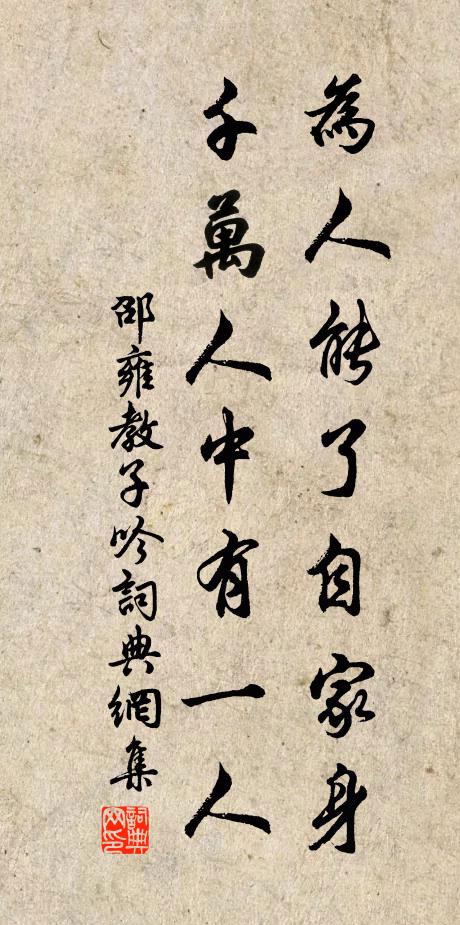 為人能了自家身
千萬人中有一人
邵雍教子吟詞典網集
詞典网印